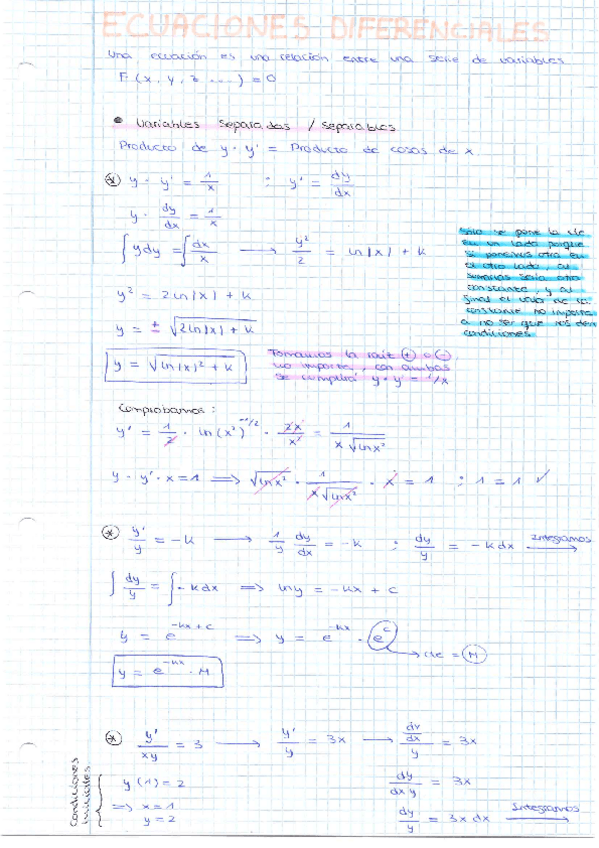 ECUACIONES DIFERENCIALES
Una ecuación es una relación entre una serie de variables
F (x, y, z ...) = 0
• Variables separadas / separables
Producto de y · y' = Producto de cosas de x
* y · y' = 1/x ; y' = dy/dx
y · dy/dx = 1/x
∫ y dy = ∫ dx/x → y²/2 = ln|x| + k
Sólo se pone la cte
en un lado porque
si ponemos otra en
el otro lado, al
sumarlas sería otra
constante, y al
final el valor de la
constante no importa
a no ser que nos den
condiciones
y² = 2 ln|x| + k
y = ± √(2 ln|x| + k)
y = √(ln|x|² + k)
Tomamos la raíz + o -
no importa, con ambas
se cumplirá y · y' = 1/x
Comprobamos :
y' = 1/2 · ln(x²)^(-1/2) · 2x/x² = 1/(x √(ln x²))
y · y' · x = 1 ⟹ √(ln x²) · 1/(x √(ln x²)) · x = 1 ; 1 = 1 ✓
* y'/y = -k → 1/y dy/dx = -k ; dy/y = -k dx Integramos →
∫ dy/y = ∫ -k dx ⟹ ln y = -kx + c
y = e^(-kx + c) ⟹ y = e^(-kx) · e^c → cte = M
y = e^(-kx) · M
* y'/(xy) = 3 → y'/y = 3x → (dy/dx)/y = 3x
Condiciones iniciales
y (1) = 2
⟹ x = 1
y = 2
dy/(dx y) = 3x
dy/y = 3x dx Integramos →